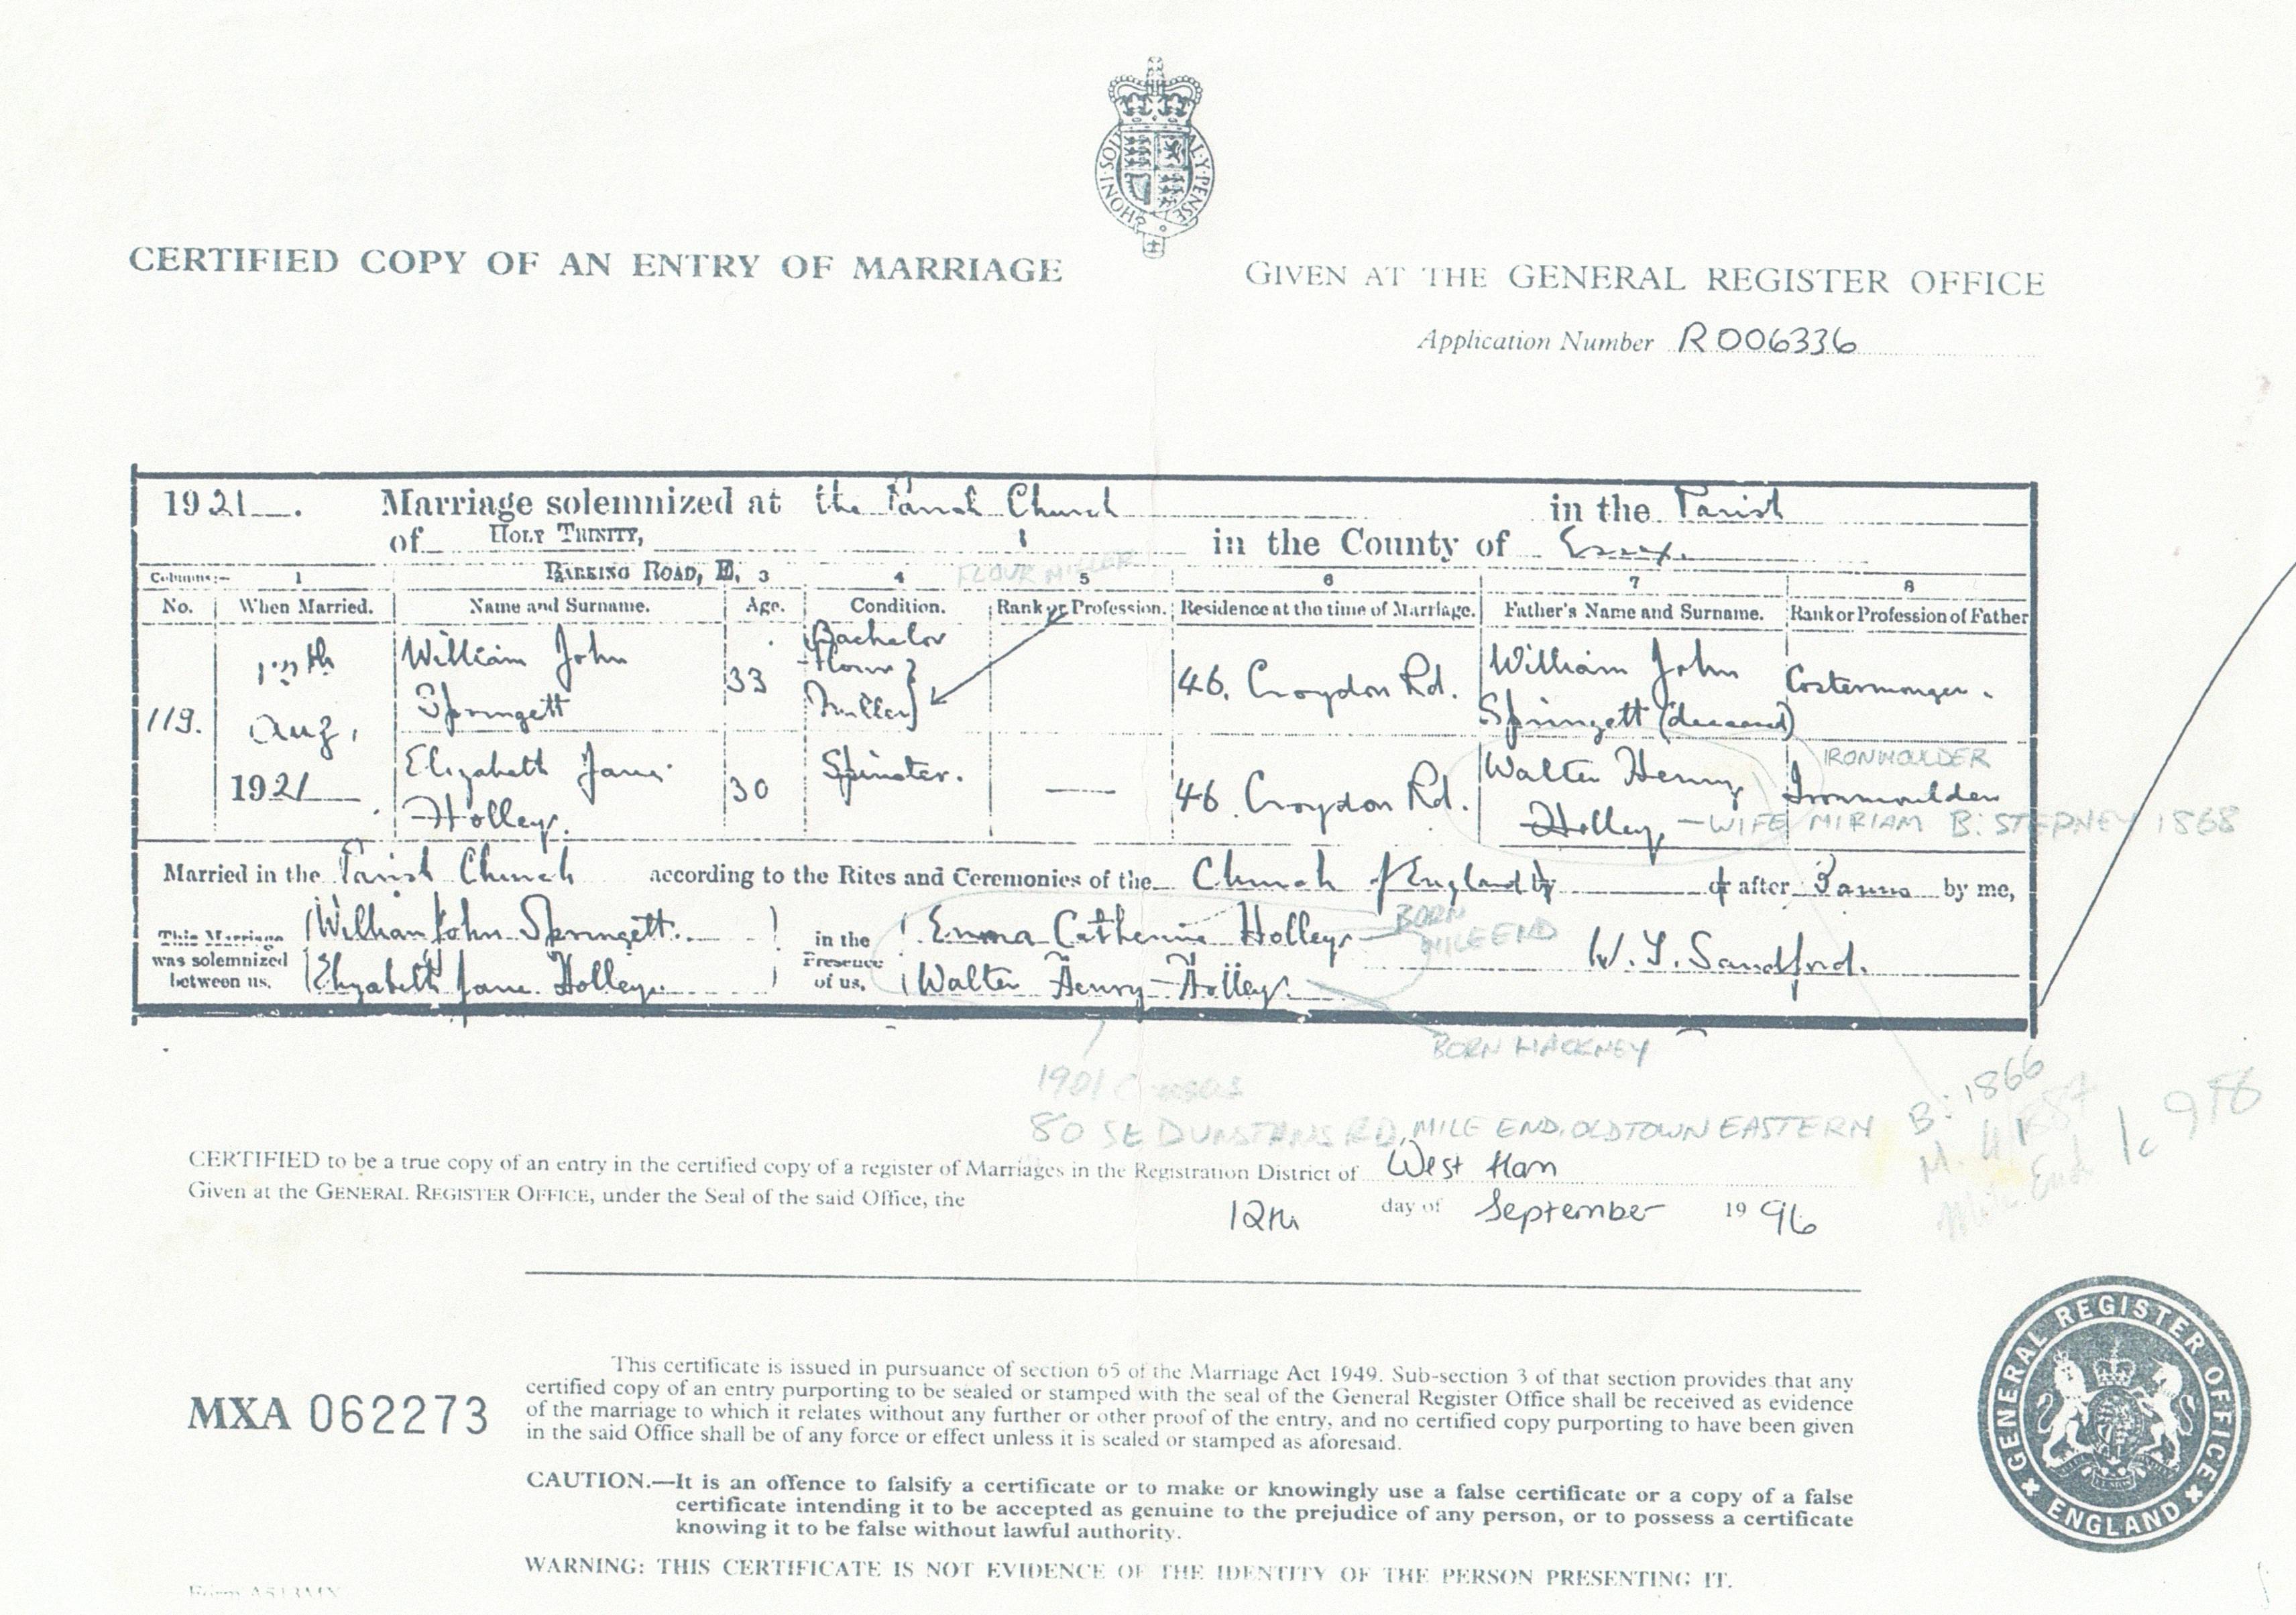 HONI·SOIT AL·Y·PENSE
CERTIFIED COPY OF AN ENTRY OF MARRIAGE
GIVEN AT THE GENERAL REGISTER OFFICE
Application Number R006336
1921. Marriage solemnized at the Parish Church in the Parish
of HOLY TRINITY, in the County of Essex.
BARKING ROAD, E.
FLOUR MILLER
Columns:— 1 3 4 5 6 7 8
No. When Married. Name and Surname. Age. Condition. Rank or Profession. Residence at the time of Marriage. Father's Name and Surname. Rank or Profession of Father
119. Aug. 1921
William John Springett 33 Bachelor Flour Miller 46. Croydon Rd. William John Springett (deceased) Costermonger.
IRONMOULDER
Elizabeth Jane Holley. 30 Spinster. — 46. Croydon Rd. Walter Henry Holley Ironmoulder
– WIFE MIRIAM B: STEPNEY 1868
Married in the Parish Church according to the Rites and Ceremonies of the Church of England by or after Banns by me,
This Marriage was solemnized between us, William John Springett. Elizabeth Jane Holley. in the Presence of us, Emma Catherine Holley Walter Henry Holley. W. T. Sandford.
BORN MILE END
BORN HACKNEY
1901 Census
80 St DUNSTANS RD, MILE END, OLD TOWN EASTERN
B: 1866
M. 4/1887
Mile End 1c 978
CERTIFIED to be a true copy of an entry in the certified copy of a register of Marriages in the Registration District of West Ham
Given at the GENERAL REGISTER OFFICE, under the Seal of the said Office, the 12th day of September 1996
MXA 062273
This certificate is issued in pursuance of section 65 of the Marriage Act 1949. Sub-section 3 of that section provides that any
certified copy of an entry purporting to be sealed or stamped with the seal of the General Register Office shall be received as evidence
of the marriage to which it relates without any further or other proof of the entry, and no certified copy purporting to have been given
in the said Office shall be of any force or effect unless it is sealed or stamped as aforesaid.
CAUTION.—It is an offence to falsify a certificate or to make or knowingly use a false certificate or a copy of a false
certificate intending it to be accepted as genuine to the prejudice of any person, or to possess a certificate
knowing it to be false without lawful authority.
WARNING: THIS CERTIFICATE IS NOT EVIDENCE OF THE IDENTITY OF THE PERSON PRESENTING IT.
GENERAL REGISTER OFFICE
ENGLAND